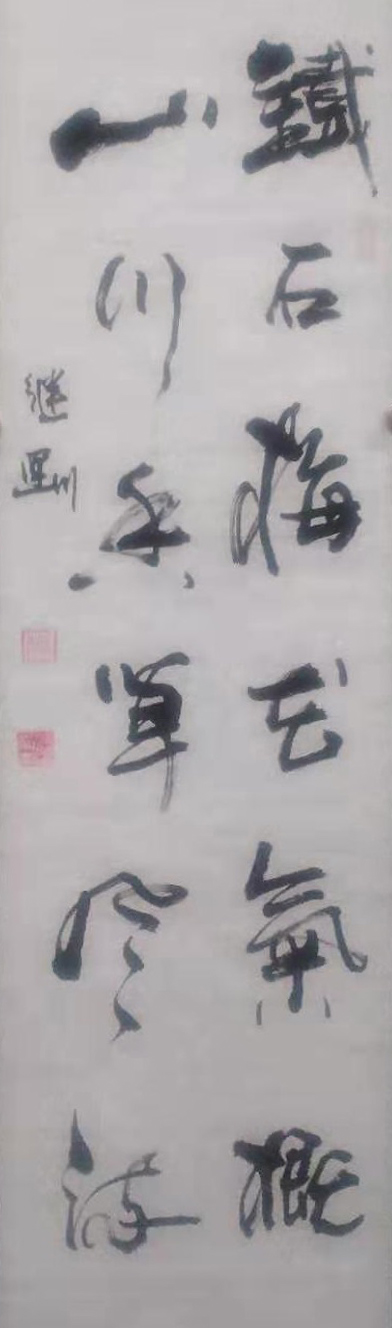 鐵石梅花氣概
山川香草風流
继川